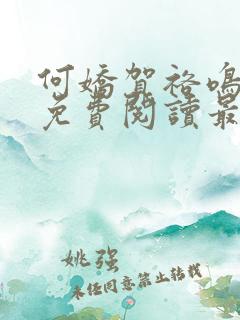 何嬌賀袼鳴
免費閱讀最
姚强
未经同意禁止转载